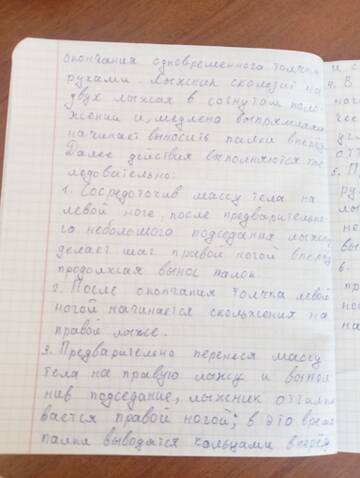 окончания одновременного толчка
руками. Лыжник скользит на
двух лыжах в согнутом поло-
жении и, медлено выпрямляясь
начинает выносить палки вперёд
Далее действия выполняются пос
ледовательно:
1. Сосредоточив массу тела на
левой ноге, после предварительно-
го небольшого подседания лыжник
делает шаг правой ногой вперед
продолжая вынос палок.
2. После окончания толчка левой
ногой начинается скольжения на
правой лыже.
3. Предварительно перенеся массу
тела на правую лыжу и выпол
нив подседание, лыжник отталки
вается правой ногой; в это время
палки выводятся кольцами вперёд
и с
4. В
ног
чее
уг
отт
5. П
ру
лы
но
вы
6.
пр
на